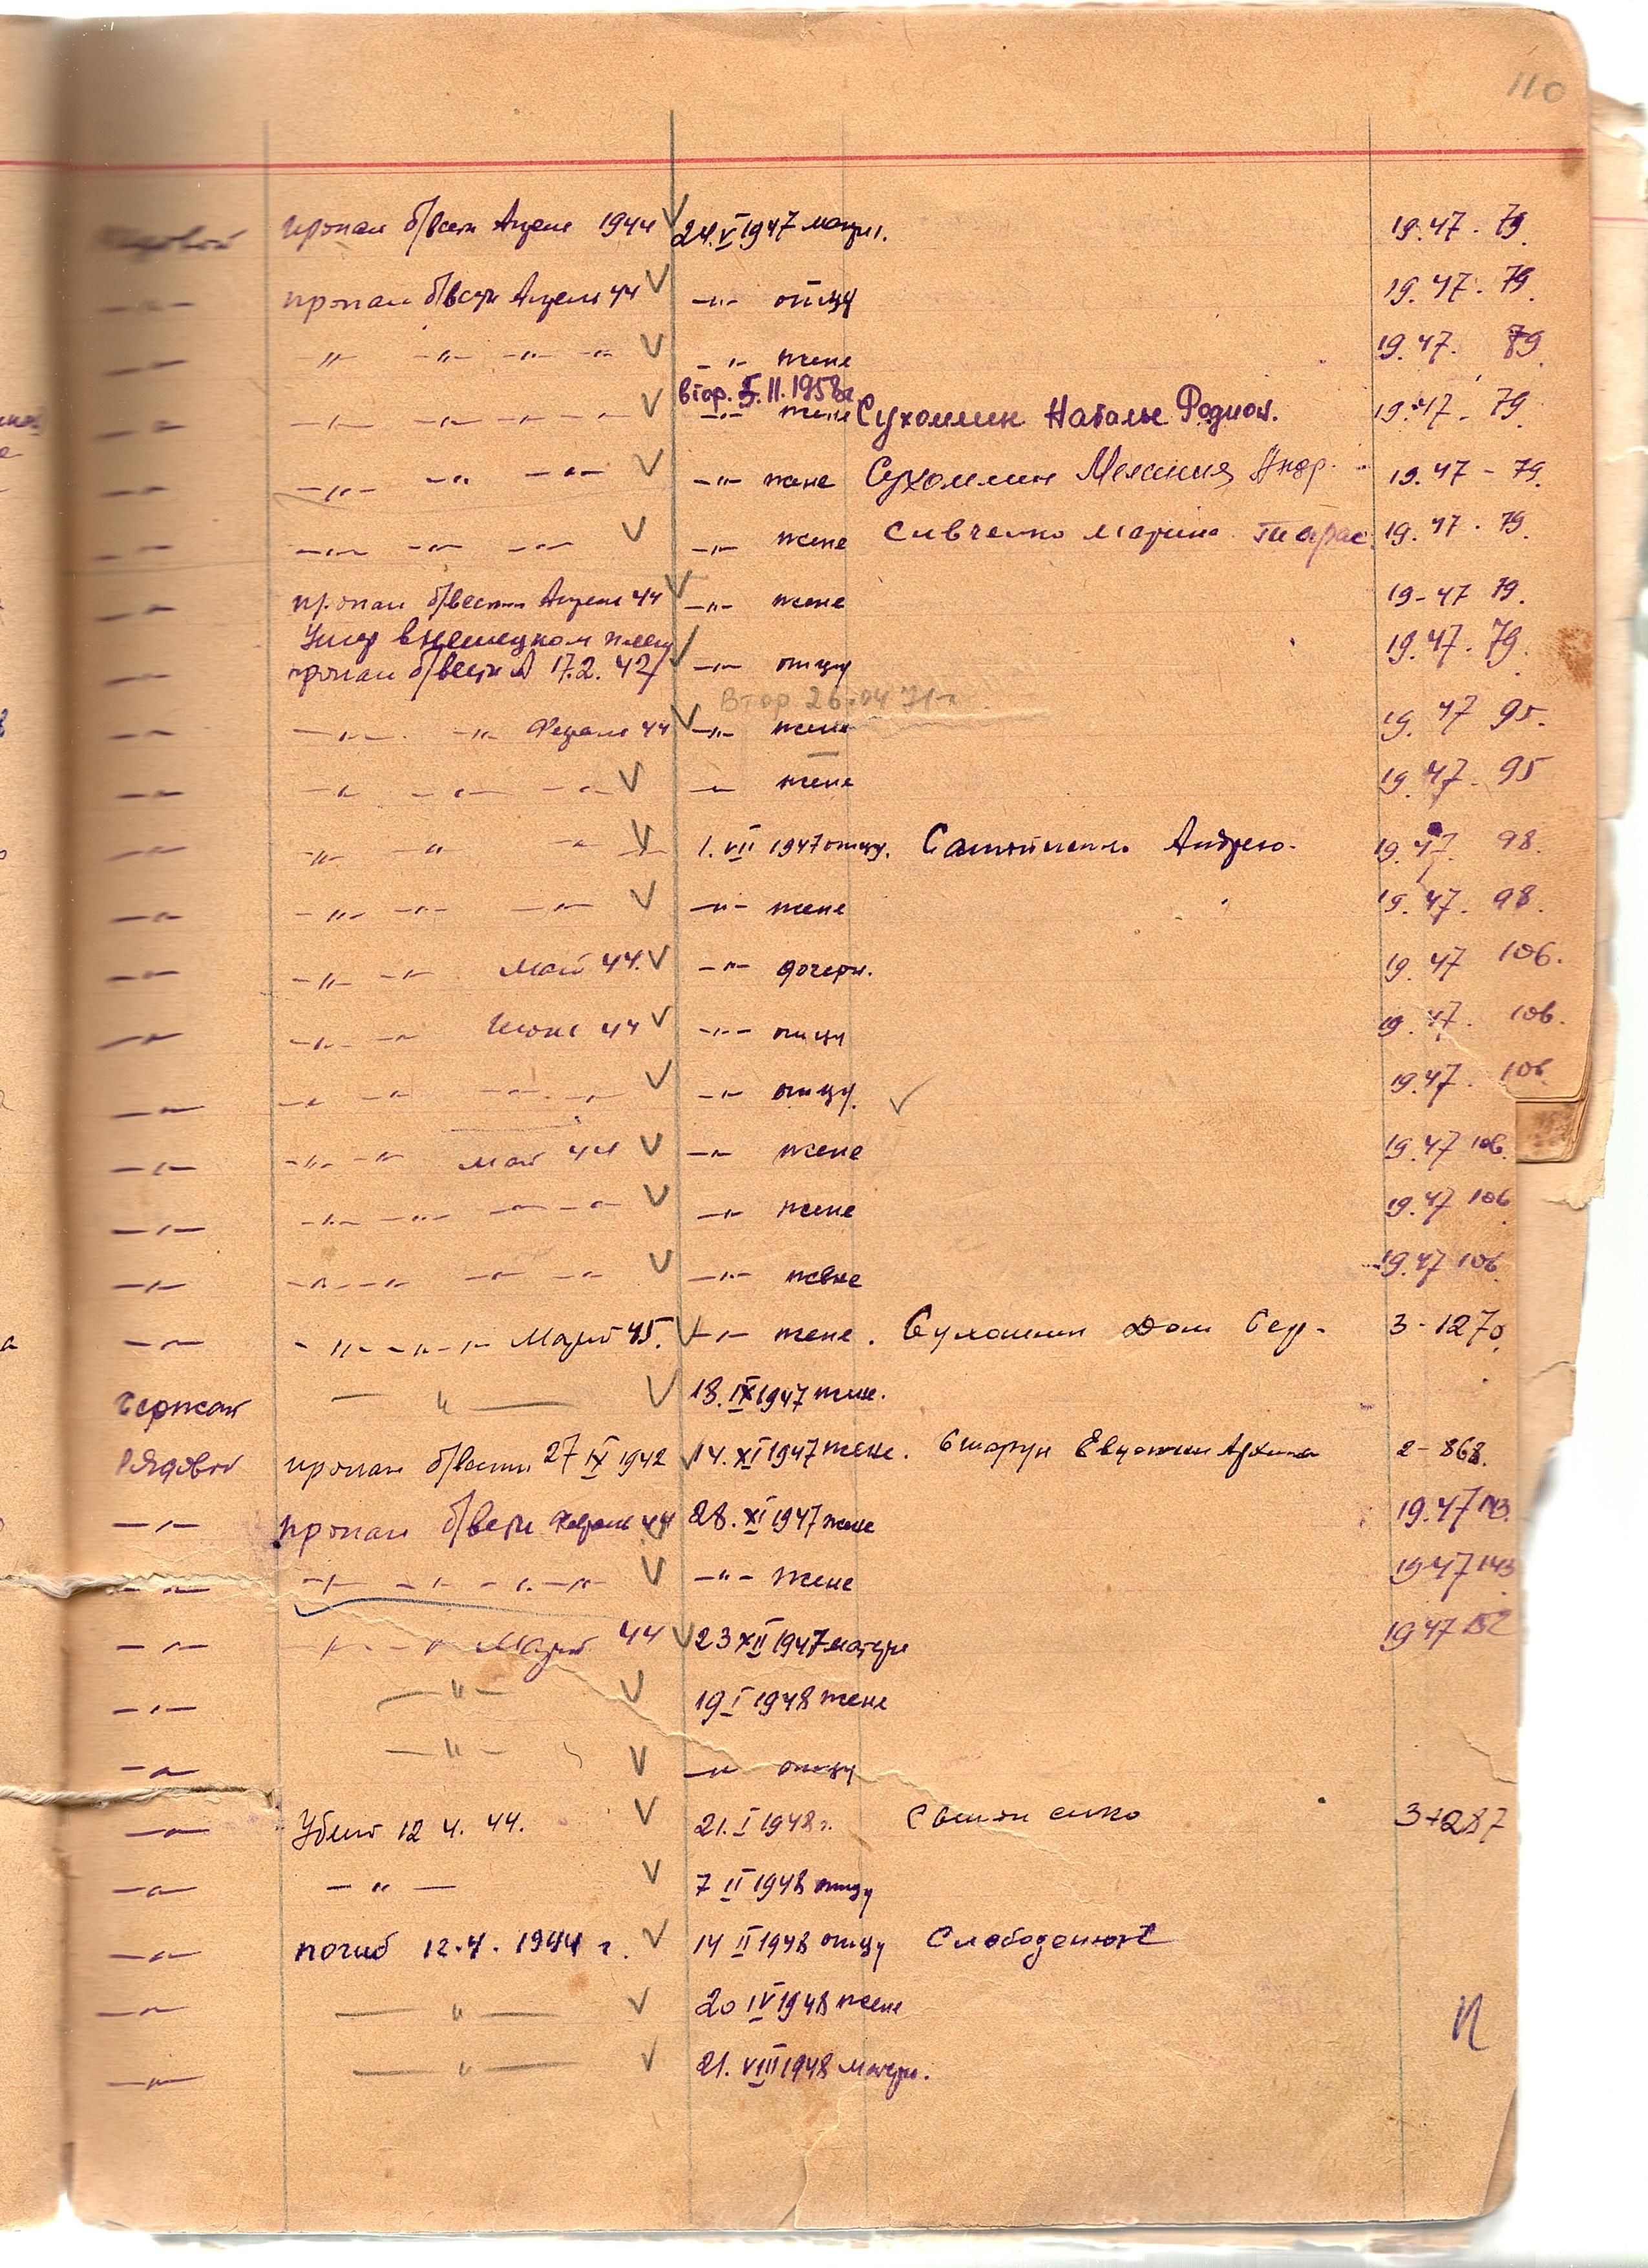 110
рядовой пропал б/вести Апрель 1944 24.V 1947 матери. 19.47. 79.
—"— пропал б/вести Апрель 44 —"— отцу 19.47. 79.
—"— —"— —"— —"— —"— —"— жене 19.47. 79
втор. 5.II.1958г.
—"— —"— —"— —"— —"— —"— жене Сухомлин Наталье Родион. 19.47 - 79.
—"— —"— —"— —"— —"— жене Сухомлин Мелания Андр. 19.47 - 79.
—"— —"— —"— —"— —"— жене Сивченко Марина Тарас. 19.47. 79.
—"— пропал б/вести Апрель 44 —"— жене 19-47 79.
Умер в немецком плену
—"— пропал б/вести 17.2.42 —"— отцу 19.47. 79.
Втор 26.04 71г.
—"— —"— —"— Февраль 44 —"— жене 19. 47 95.
—"— —"— —"— —"— —"— жене 19.47. 95
—"— —"— —"— —"— 1.VII 1947 отцу. Андрею. 19.47. 98.
—"— —"— —"— —"— —"— жене 19.47. 98.
—"— —"— —"— май 44. —"— дочери. 19.47 106.
—"— —"— —"— Июнь 44 —"— отцу 19.47. 106.
—"— —"— —"— —"— —"— —"— отцу. 19.47. 106.
—"— —"— —"— май 44 —"— жене 19.47 106.
—"— —"— —"— —"— —"— —"— жене 19.47 106
—"— —"— —"— —"— —"— —"— жене 19.47 106.
—"— —"— —"— —"— Март 45. —"— жене. Сухомлин Дом 3-1270.
Сержант —"— 18.IX 1947 жене.
Рядовой пропал б/вести 27 IX 1942 14.XI 1947 жене. Старун 2-868.
—"— пропал б/вести Февраль 44 28.XI 1947 жене 19.47 143.
—"— —"— —"— —"— —"— —"— жене 19.47 143
—"— —"— —"— Март 44 23 XII 1947 матери 19 47 152
—"— —"— 19 I 1948 жене
—"— —"— —"— отцу
—"— Убит 12 4. 44. 21.I 1948г. 3+287
—"— —"— 7 II 1948 отцу
—"— погиб 12.4.1944 г. 14 II 1948 отцу Слободенюк
—"— —"— 20 IV 1948 жене
—"— —"— 21.VIII 1948 матери.